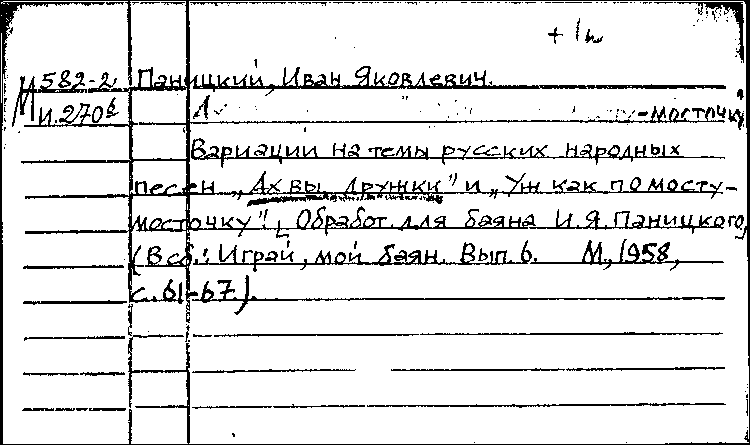 + 1н
М 582-2 Паницкий, Иван Яковлевич.
и.270б -мосточку
Вариации на темы русских народных
песен „Ах вы, дружки" и „Уж как по мосту-
мосточку". [Обработ. для баяна И.Я. Паницкого]
(В сб.: Играй, мой баян. Вып. 6. М., 1958,
с. 61-67).